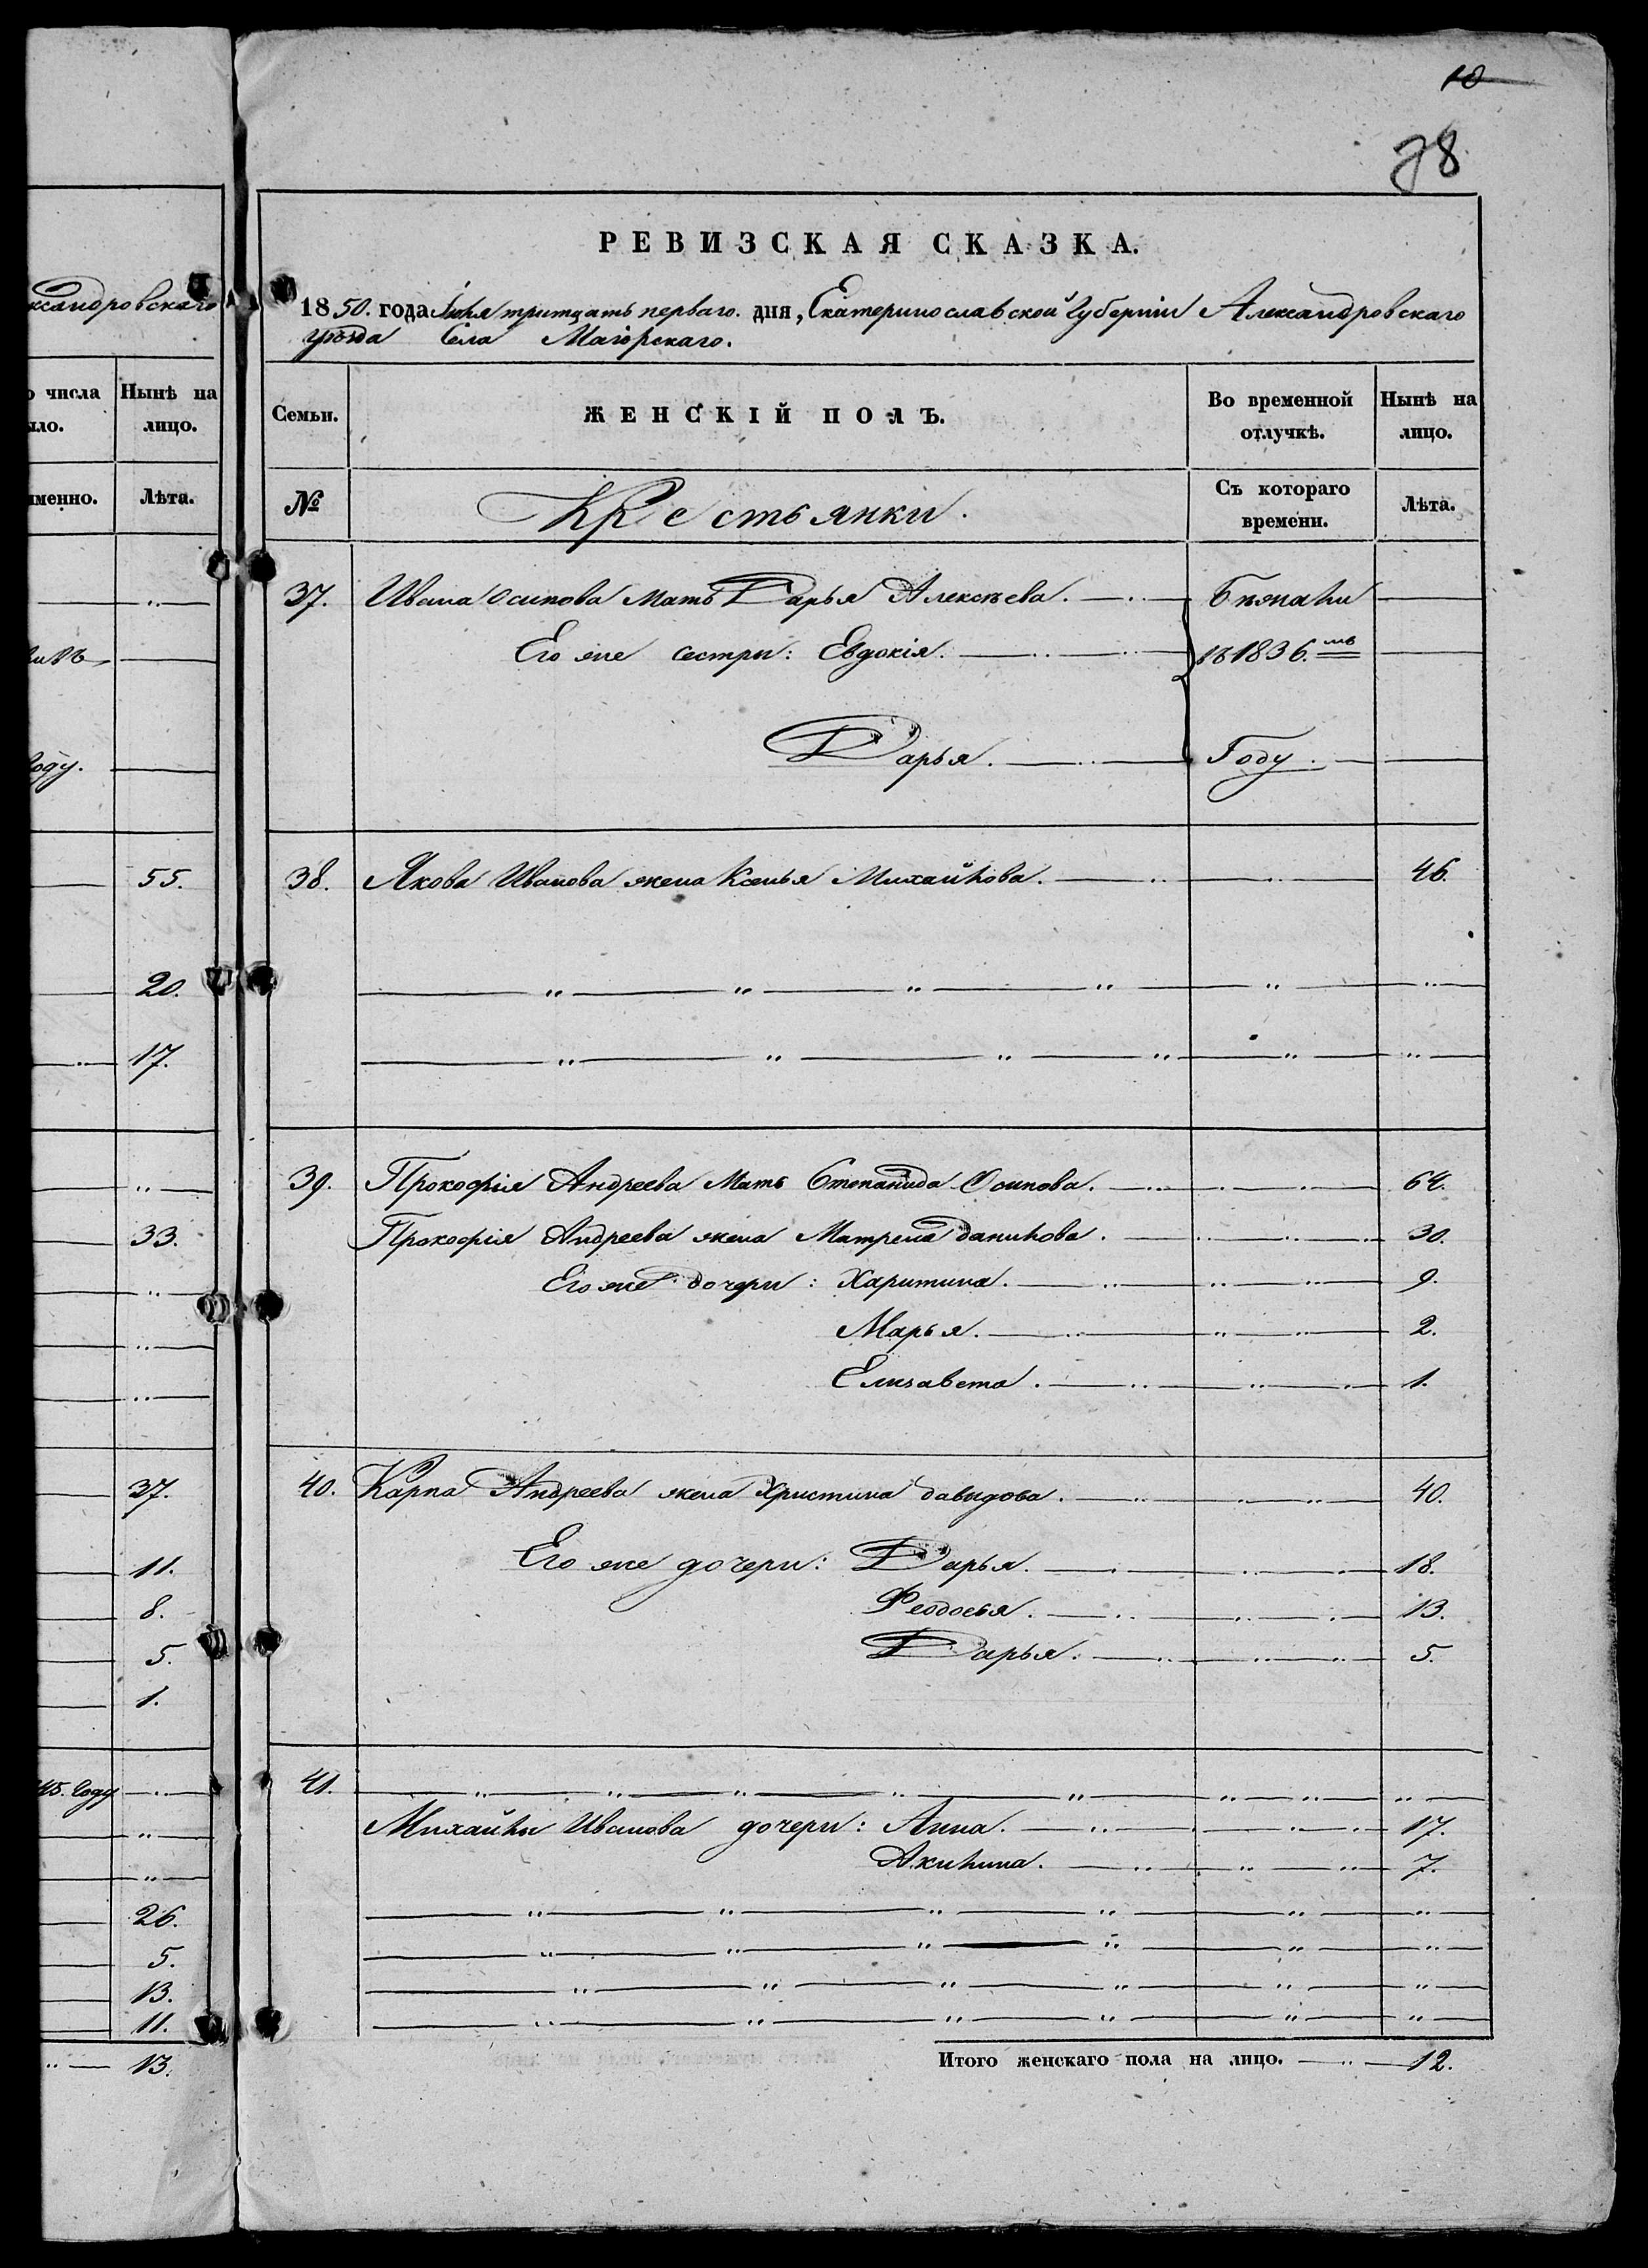 10
78
РЕВИЗСКАЯ СКАЗКА.
1850. года Іюля тритцать перваго. дня, Екатеринославской Губерніи Александровскаго
уѣзда Села Маіорскаго.
Семьи. ЖЕНСКІЙ ПОЛЪ. Во временной отлучкѣ. Нынѣ на лицо.
№ Крестьянки. Съ котораго времени. Лѣта.
37. Ивана Осипова Мать Дарья Алексѣева. Бѣжали
Его же сестри: Евдокія. въ 1836.мъ
Дарья. Году.
38. Якова Иванова жена Ксенья Михайлова. 46.
39. Прокофія Андреева Мать Степанида Осипова. 64.
Прокофія Андреева жена Матрена Данилова. 30.
Его же дочери: Харитина. 9.
Марья. 2.
Елизавета. 1.
40. Карпа Андреева жена Христина Давыдова. 40.
Его же дочери: Дарья. 18.
Феодосья. 13.
Дарья. 5.
41.
Михайлы Иванова дочери: Анна. 17.
Акилина. 7.
Итого женскаго пола на лицо. 12.
ксандровскаго
числа Нынѣ на
ло. лицо.
именно. Лѣта.
году.
55.
20.
17.
33.
37.
11.
8.
5.
1.
45. Году
26.
5.
13.
11.
13.